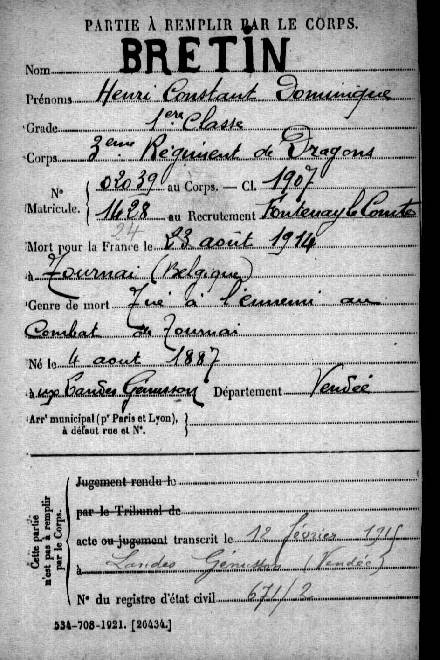 PARTIE À REMPLIR PAR LE CORPS.
Nom BRETIN
Prénoms Henri Constant Dominique
Grade 1ère Classe
Corps 3eme Régiment de Dragons
N° Matricule. { 02039 au Corps. — Cl. 1907
1428 au Recrutement Fontenay le Comte
24
Mort pour la France le 23 août 1914
à Tournai (Belgique)
Genre de mort Tué à l'ennemi au
Combat de Tournai
Né le 4 aout 1887
aux Landes Genusson Département Vendée
Arrt municipal (pr Paris et Lyon), à défaut rue et N°. }
Cette partie n'est pas à remplir par le Corps.
Jugement rendu le
par le Tribunal de
acte ou jugement transcrit le 12 février 1915
à Landes Génusson (Vendée)
N° du registre d'état civil 671/2
534-708-1921. [26434.]